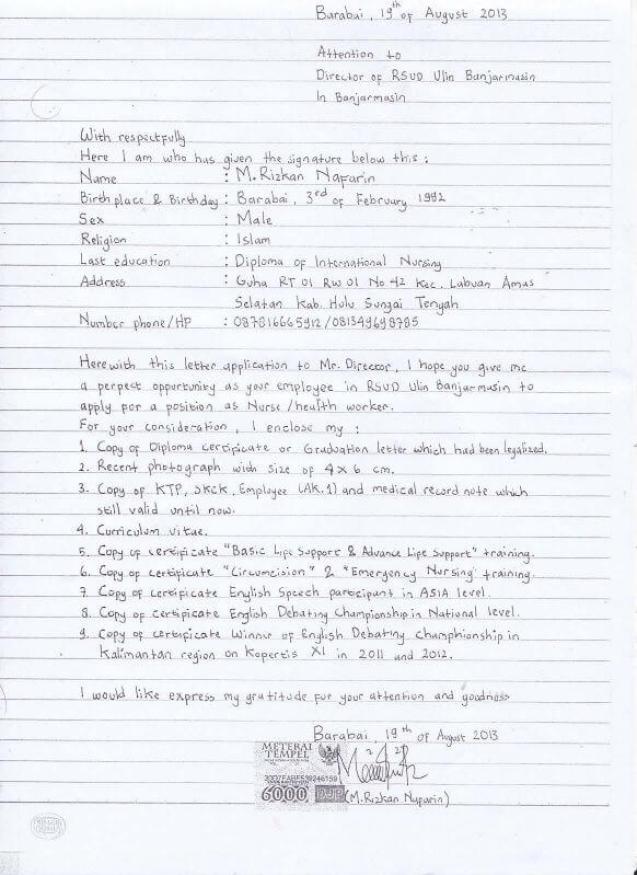 Barabai, 19th of August 2013
Attention to
Director of RSUD Ulin Banjarmasin
In Banjarmasin
With respectfully
Here I am who has given the signature below this :
Name : M. Rizkan Naparin
Birth place & Birthday : Barabai, 3rd of February 1992
Sex : Male
Religion : Islam
Last education : Diploma of International Nursing
Address : Guha RT 01 RW 01 No. 42 Kec. Labuan Amas
Selatan Kab. Hulu Sungai Tengah
Number phone/HP : 087816665912 / 081349698785
Herewith this letter application to Mr. Director, I hope you give me
a perpect opportunity as your employee in RSUD Ulin Banjarmasin to
apply por a position as Nurse/health worker.
For your consideration, I enclose my :
1. Copy of Diploma certificate or Graduation letter which had been legalized.
2. Recent photograph with size of 4 x 6 cm.
3. Copy of KTP, SKCK, Employee (AK.1) and medical record note which
still valid until now.
4. Curriculum vitae.
5. Copy of certipicate "Basic Lipe Support & Advance Lipe Support" training.
6. Copy of certipicate "Circumcision" & "Emergency Nursing" training.
7. Copy of certipicate English Speech participant in ASIA level.
8. Copy of certipicate English Debating Championship in National level.
9. Copy of certipicate Winner of English Debating Champhionship in
Kalimantan region on Kopertis XI in 2011 and 2012.
I would like express my gratitude for your attention and goodness
Barabai, 19th of August 2013
METERAI
TEMPEL
6000 DJP
(M. Rizkan Naparin)